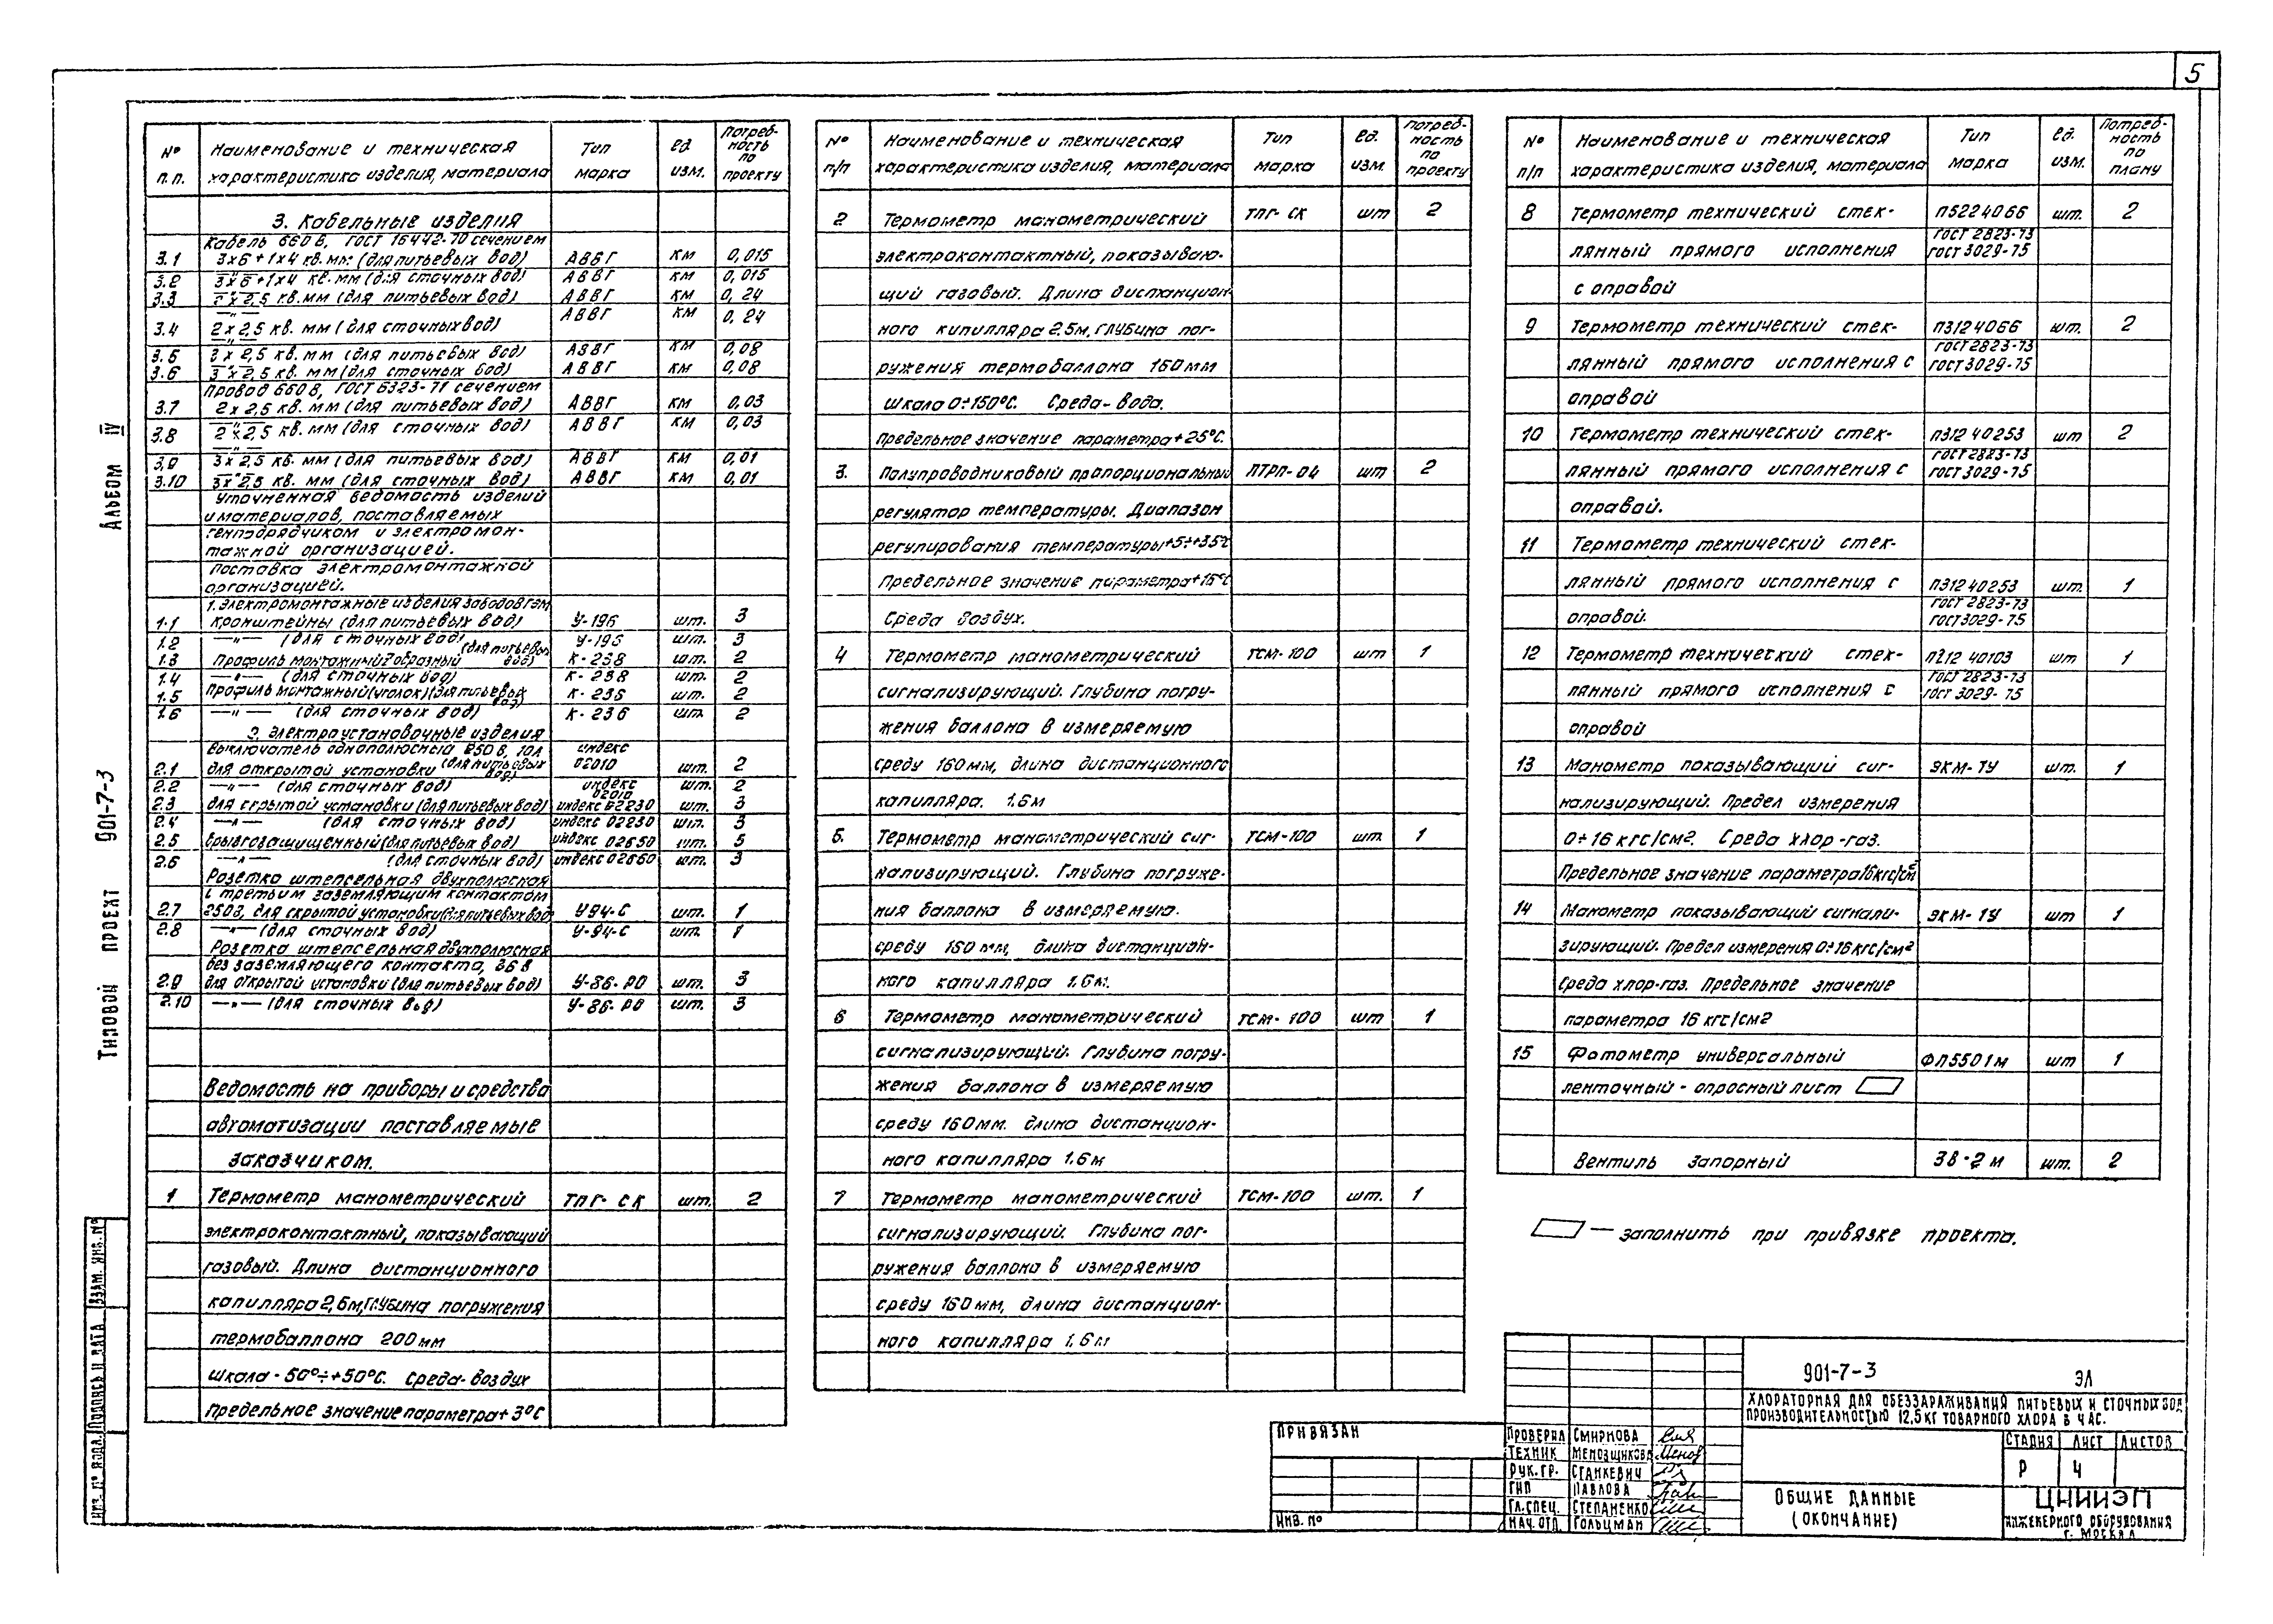 5
Типовой проект 901-7-3 Альбом IV
№ п.п. Наименование и техническая характеристика изделия, материала Тип марка ед. изм. Потребность по проекту
3. Кабельные изделия
Кабель 660 В, ГОСТ 16442-70 сечением
3.1 3х6+1х4 кв. мм (для питьевых вод) АВВГ км 0,015
3.2 3х6+1х4 кв. мм (для сточных вод) АВВГ км 0,015
3.3 2х2,5 кв. мм (для питьевых вод) АВВГ км 0,24
3.4 2х2,5 кв. мм (для сточных вод) АВВГ км 0,24
3.5 3х2,5 кв. мм (для питьевых вод) АВВГ км 0,08
3.6 3х2,5 кв. мм (для сточных вод) АВВГ км 0,08
Провод 660 В, ГОСТ 6323-71 сечением
3.7 2х2,5 кв. мм (для питьевых вод) АВВГ км 0,03
3.8 2х2,5 кв. мм (для сточных вод) АВВГ км 0,03
3.9 3х2,5 кв. мм (для питьевых вод) АВВГ км 0,01
3.10 3х2,5 кв. мм (для сточных вод) АВВГ км 0,01
Уточненная ведомость изделий
и материалов, поставляемых
генподрядчиком и электромон-
тажной организацией.
Поставка электромонтажной
организацией.
1. Электромонтажные изделия заводов ГЭМ
1.1 Кронштейны (для питьевых вод) У-196 шт. 3
1.2 —"— (для сточных вод) У-196 шт. 3
1.3 Профиль монтажный Z образный (для питьевых вод) К-238 шт. 2
1.4 —"— (для сточных вод) К-238 шт. 2
1.5 Профиль монтажный (уголок) (для питьевых вод) К-236 шт. 2
1.6 —"— (для сточных вод) К-236 шт. 2
2. Электроустановочные изделия
Выключатель однополюсный 250 В, 10А
2.1 для открытой установки (для питьевых вод) индекс 02010 шт. 2
2.2 —"— (для сточных вод) индекс 02010 шт. 2
2.3 для скрытой установки (для питьевых вод) индекс 02230 шт. 3
2.4 —"— (для сточных вод) индекс 02230 шт. 3
2.5 брызгозащищенный (для питьевых вод) индекс 02650 шт. 5
2.6 —"— (для сточных вод) индекс 02660 шт. 3
Розетка штепсельная двухполюсная
с третьим заземляющим контактом
2.7 250 В, для скрытой установки (для питьевых вод) У94-С шт. 1
2.8 —"— (для сточных вод) У-94-С шт. 1
Розетка штепсельная двухполюсная
без заземляющего контакта, 36 В
2.9 для открытой установки (для питьевых вод) У-86-РО шт. 3
2.10 —"— (для сточных вод) У-86-РО шт. 3
Ведомость на приборы и средства
автоматизации поставляемые
заказчиком.
1 Термометр манометрический ТПГ-СК шт. 2
электроконтактный, показывающий
газовый. Длина дистанционного
капилляра 2,5м, глубина погружения
термобаллона 200 мм
Шкала -50°÷+50°С. Среда-воздух
Предельное значение параметра +3°С
№ п/п Наименование и техническая характеристика изделия, материала Тип марка ед. изм. Потребность по проекту
2 Термометр манометрический ТПГ-СК шт 2
электроконтактный, показываю-
щий газовый. Длина дистанцион-
ного кипилляра 2,5м, глубина пог-
ружения термобаллона 160 мм
Шкала 0÷150°С. Среда-вода.
Предельное значение параметра +25°С.
3. Полупроводниковый пропорциональный ПТРП-04 шт 2
регулятор температуры. Диапазон
регулирования температуры +5÷+35°С
Предельное значение параметра +15°С
Среда воздух.
4 Термометр манометрический ТСМ-100 шт 1
сигнализирующий. Глубина погру-
жения баллона в измеряемую
среду 160 мм, длина дистанционного
капилляра. 1,6 м
5. Термометр манометрический сиг- ТСМ-100 шт. 1
нализирующий. Глубина погруже-
ния баллона в измеряемую.
среду 160 мм, длина дистанцион-
ного капилляра 1,6 м.
6 Термометр манометрический ТСМ-100 шт 1
сигнализирующий. Глубина погру-
жения баллона в измеряемую
среду 160 мм. длина дистанцион-
ного капилляра 1.6 м
7 Термометр манометрический ТСМ-100 шт. 1
сигнализирующий. Глубина пог-
ружения баллона в измеряемую
среду 160 мм, длина дистанцион-
ного капилляра 1,6 м
№ п/п Наименование и техническая характеристика изделия, материала Тип марка ед. изм. Потребность по плану
8 Термометр технический стек- П5224066 шт. 2
лянный прямого исполнения ГОСТ 2823-73 ГОСТ 3029-75
с оправой
9 Термометр технический стек- П3124066 шт. 2
лянный прямого исполнения с ГОСТ 2823-73 ГОСТ 3029-75
оправой
10 Термометр технический стек- П31240253 шт 2
лянный прямого исполнения с ГОСТ 2823-73 ГОСТ 3029-75
оправой.
11 Термометр технический стек-
лянный прямого исполнения с П31240253 шт. 1
оправой. ГОСТ 2823-73 ГОСТ 3029-75
12 Термометр технический стек- П21240103 шт 1
лянный прямого исполнения с ГОСТ 2823-73 ГОСТ 3029-75
оправой
13 Манометр показывающий сиг- ЭКМ-1У шт. 1
нализирующий. Предел измерения
0÷16 кгс/см2. Среда хлор-газ.
Предельное значение параметра 16 кгс/см2
14 Манометр показывающий сигнали- ЭКМ-1У шт 1
зирующий. Предел измерения 0÷16 кгс/см2
Среда хлор-газ. Предельное значение
параметра 16 кгс/см2
15 Фотометр универсальный ФЛ5501м шт 1
ленточный - опросный лист
Вентиль запорный 3В-2м шт. 2
— заполнить при привязке проекта.
Инв. № подл. Подпись и дата Взам. инв. №
Привязан
Инв. №
Проверил Смирнова
Техник Меновщикова
Рук. гр. Станкевич
ГИП Павлова
Гл. спец. Степаненко
Нач. отд. Гольцман
901-7-3 ЭЛ
Хлораторная для обеззараживания питьевых и сточных вод
производительностью 12,5 кг товарного хлора в час.
Стадия Лист Листов
Р 4
Общие данные
(окончание)
ЦНИИЭП
инженерного оборудования
г. Москва